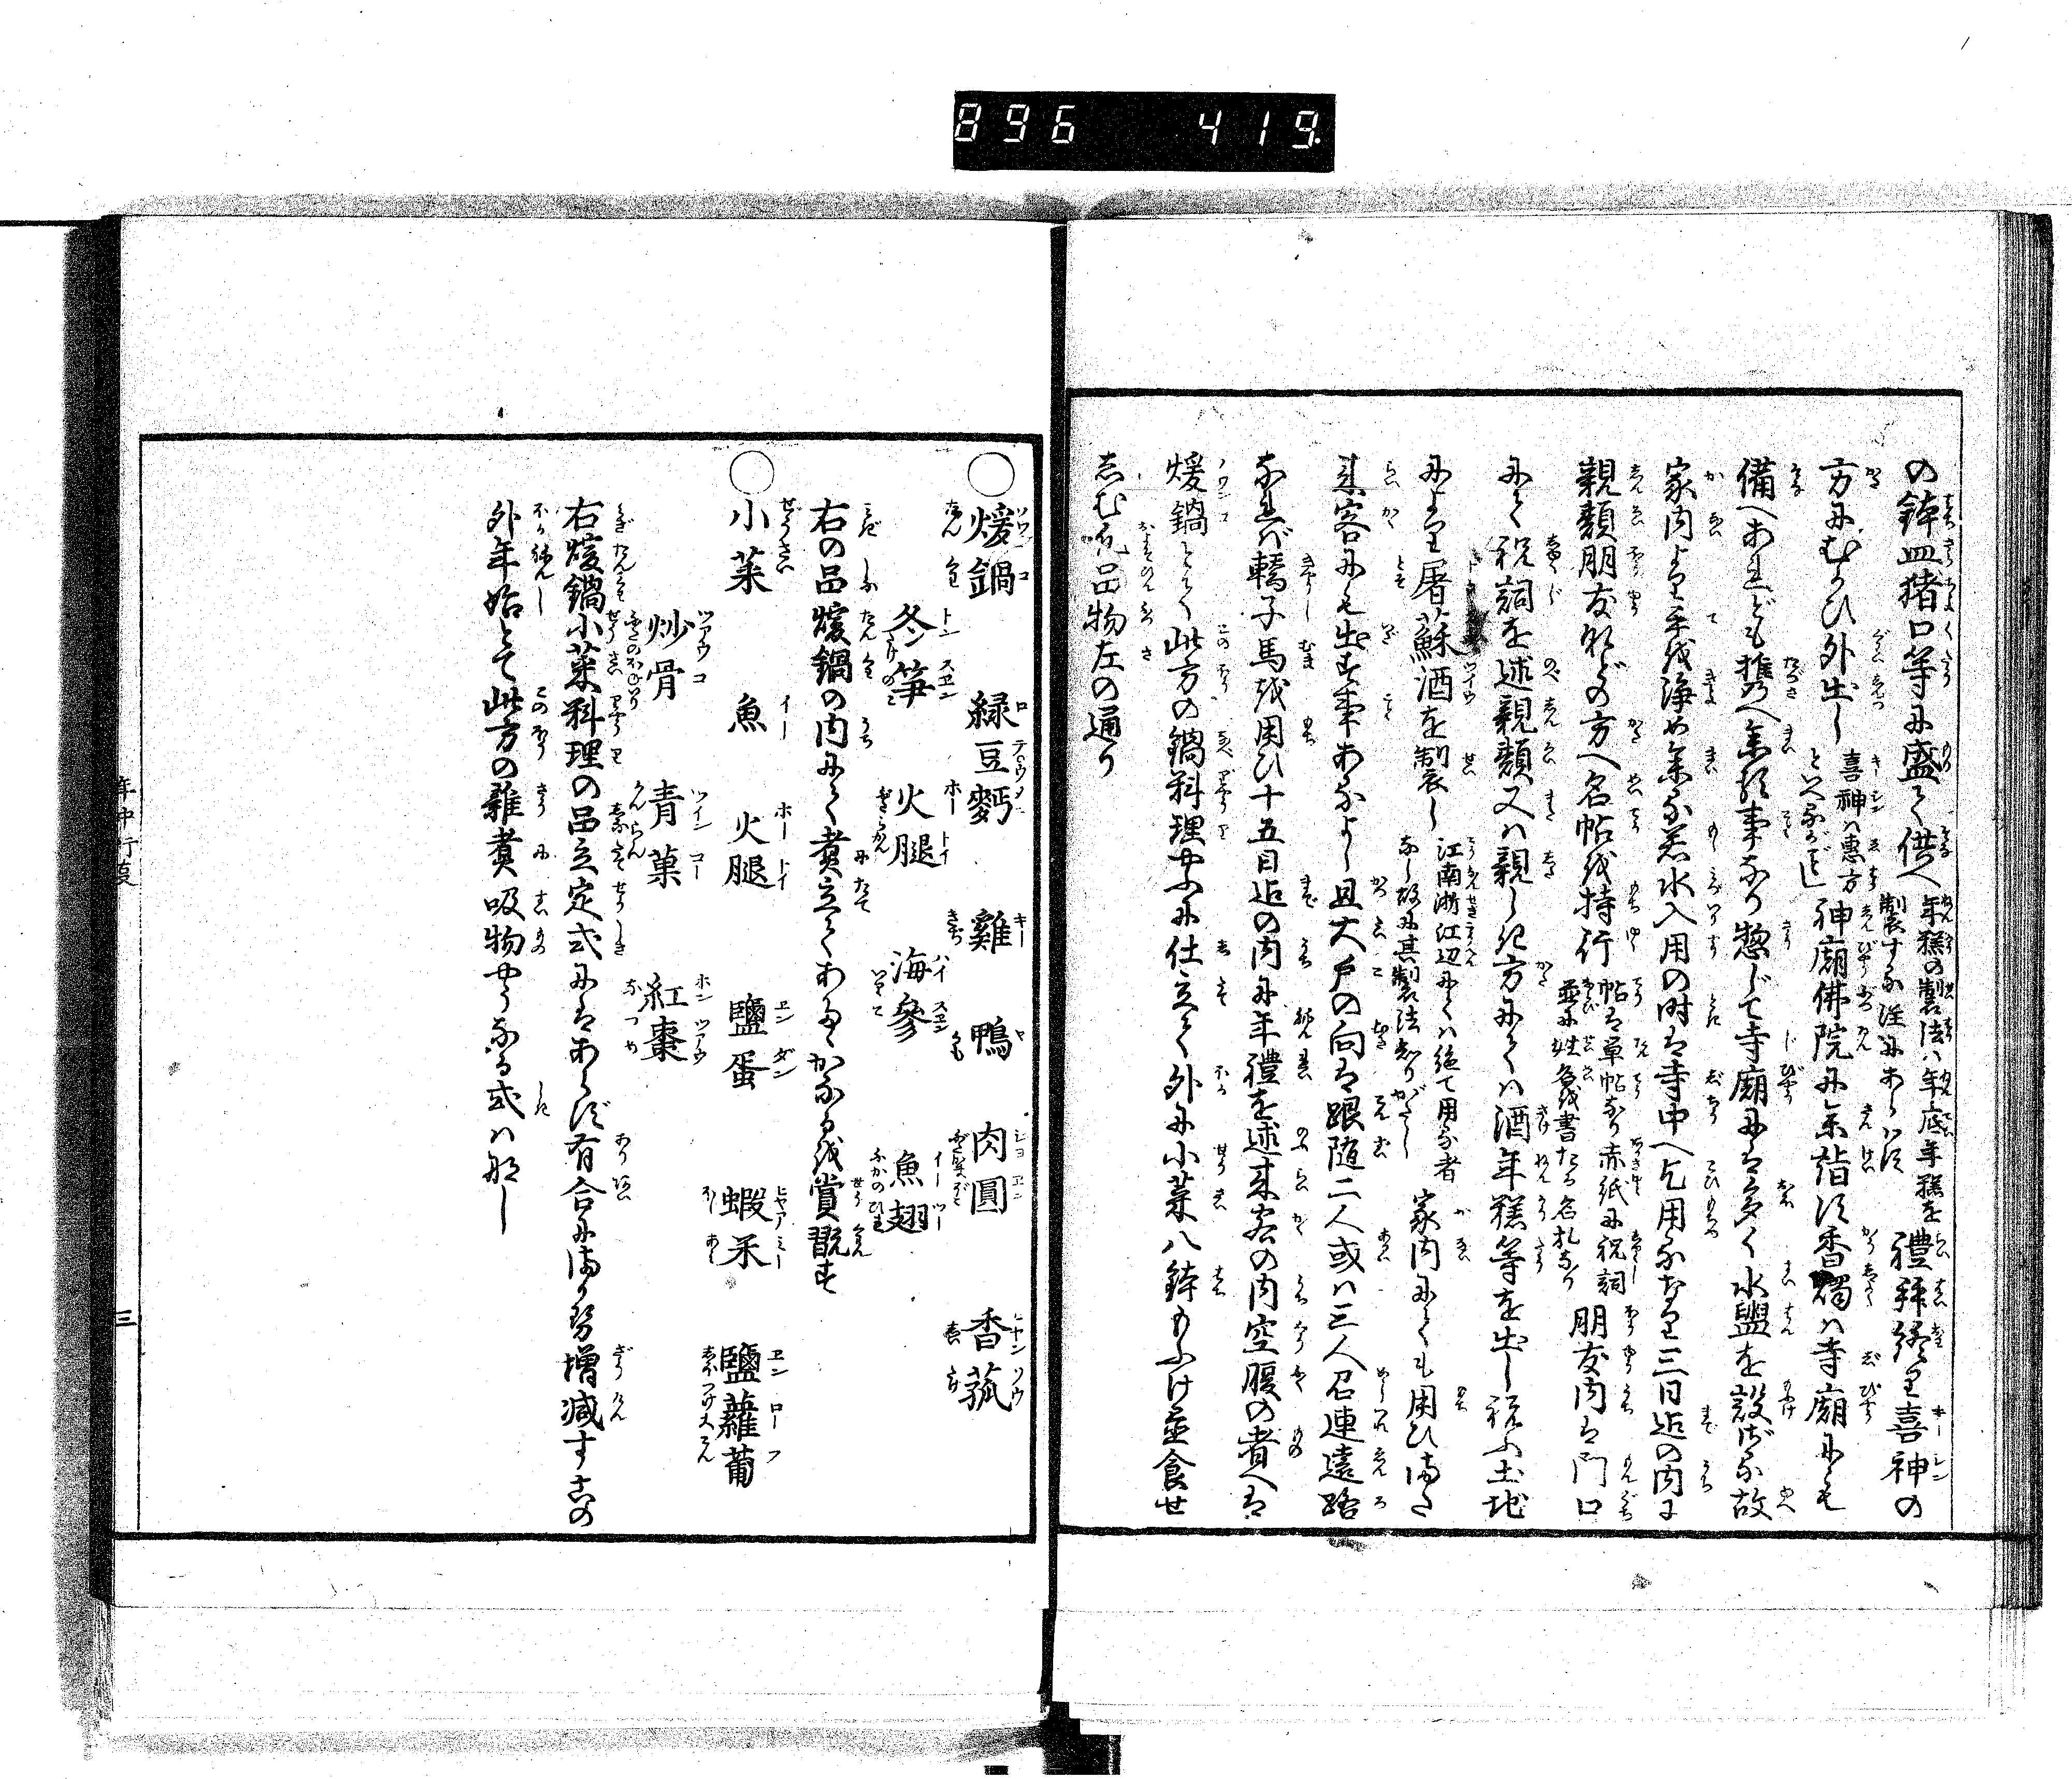 896 419
の鉢皿猪口等に盛て供へ
年糕の製法ハ年底年糕を
製する註にあらハす
禮拜終り喜神の
方にむかひ外出し
喜神ハ惠方
といふがごとし
神廟佛院に参詣す香燭ハ寺廟にも
備へあれども携へ参る事あり惣じて寺廟にハ多く水盥を設ざる故
家内より手を浄め参る若水入用の時ハ寺中へ乞用るなり三日迄の内は
親類朋友などの方へ名帖を持行
帖ハ單帖なり赤紙に祝詞
並に姓名を書たる名札なり
朋友内ハ門口
にて祝詞を述親類又ハ親しき方にてハ酒年糕等を出し祝ふ土地
により屠蘇酒を製し
江南浙江辺にてハ絶て用る者
なし故に其製法知りがたし
家内にても用ひまた
来客にも出す事あるよし且大戸の向ハ跟随二人或ハ三人召連遠路
なれば轎子馬を用ひ十五日迄の内に年禮を述来客の内空腹の者へハ
煖鍋とて此方の鍋料理やふに仕立て外に小菜八鉢もふけ並食せ
しむ尤品物左の通り
○煖鍋 緑豆麪 雞 鴨 肉圓 香菰
冬笋 火腿 海參 魚翅
右の品煖鍋の内にて煮立てあたゝかなるを賞翫す
○小菜 魚 火腿 鹽蛋 蝦米 鹽蘿蔔
炒骨 青菓 紅棗
右煖鍋小菜料理の品立定式にハあらず有合にまかせ増減す其の
外年始とて此方の雜煮吸物やうなる式ハなし
年中行夏
三